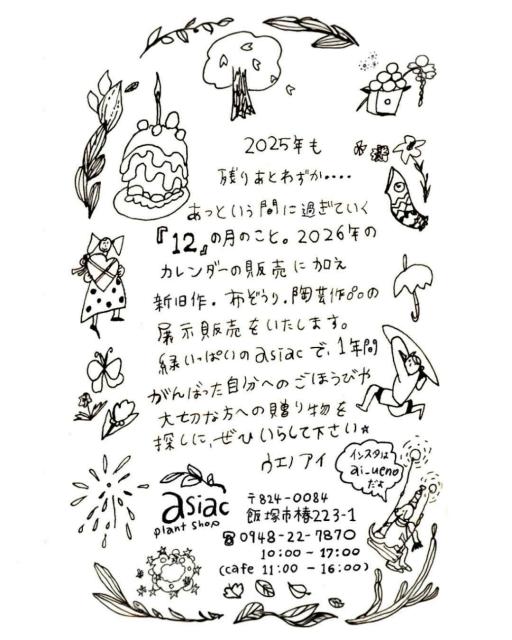 2025年も
残りあとわずか....
あっという間に過ぎていく
『12』の月のこと。2026年の
カレンダーの販売に加え
新旧作。布ぞうり。陶芸作品の
展示販売をいたします。
緑いっぱいのasiacで、1年間
がんばった自分へのごほうびや
大切な方への贈り物を
探しに、ぜひいらして下さい☆
ウエノ アイ
インスタは
ai_ueno
だよ
asiac
plant shop
〒824-0084
飯塚市椿223-1
☎0948-22-7870
10:00-17:00
(cafe 11:00 - 16:00)